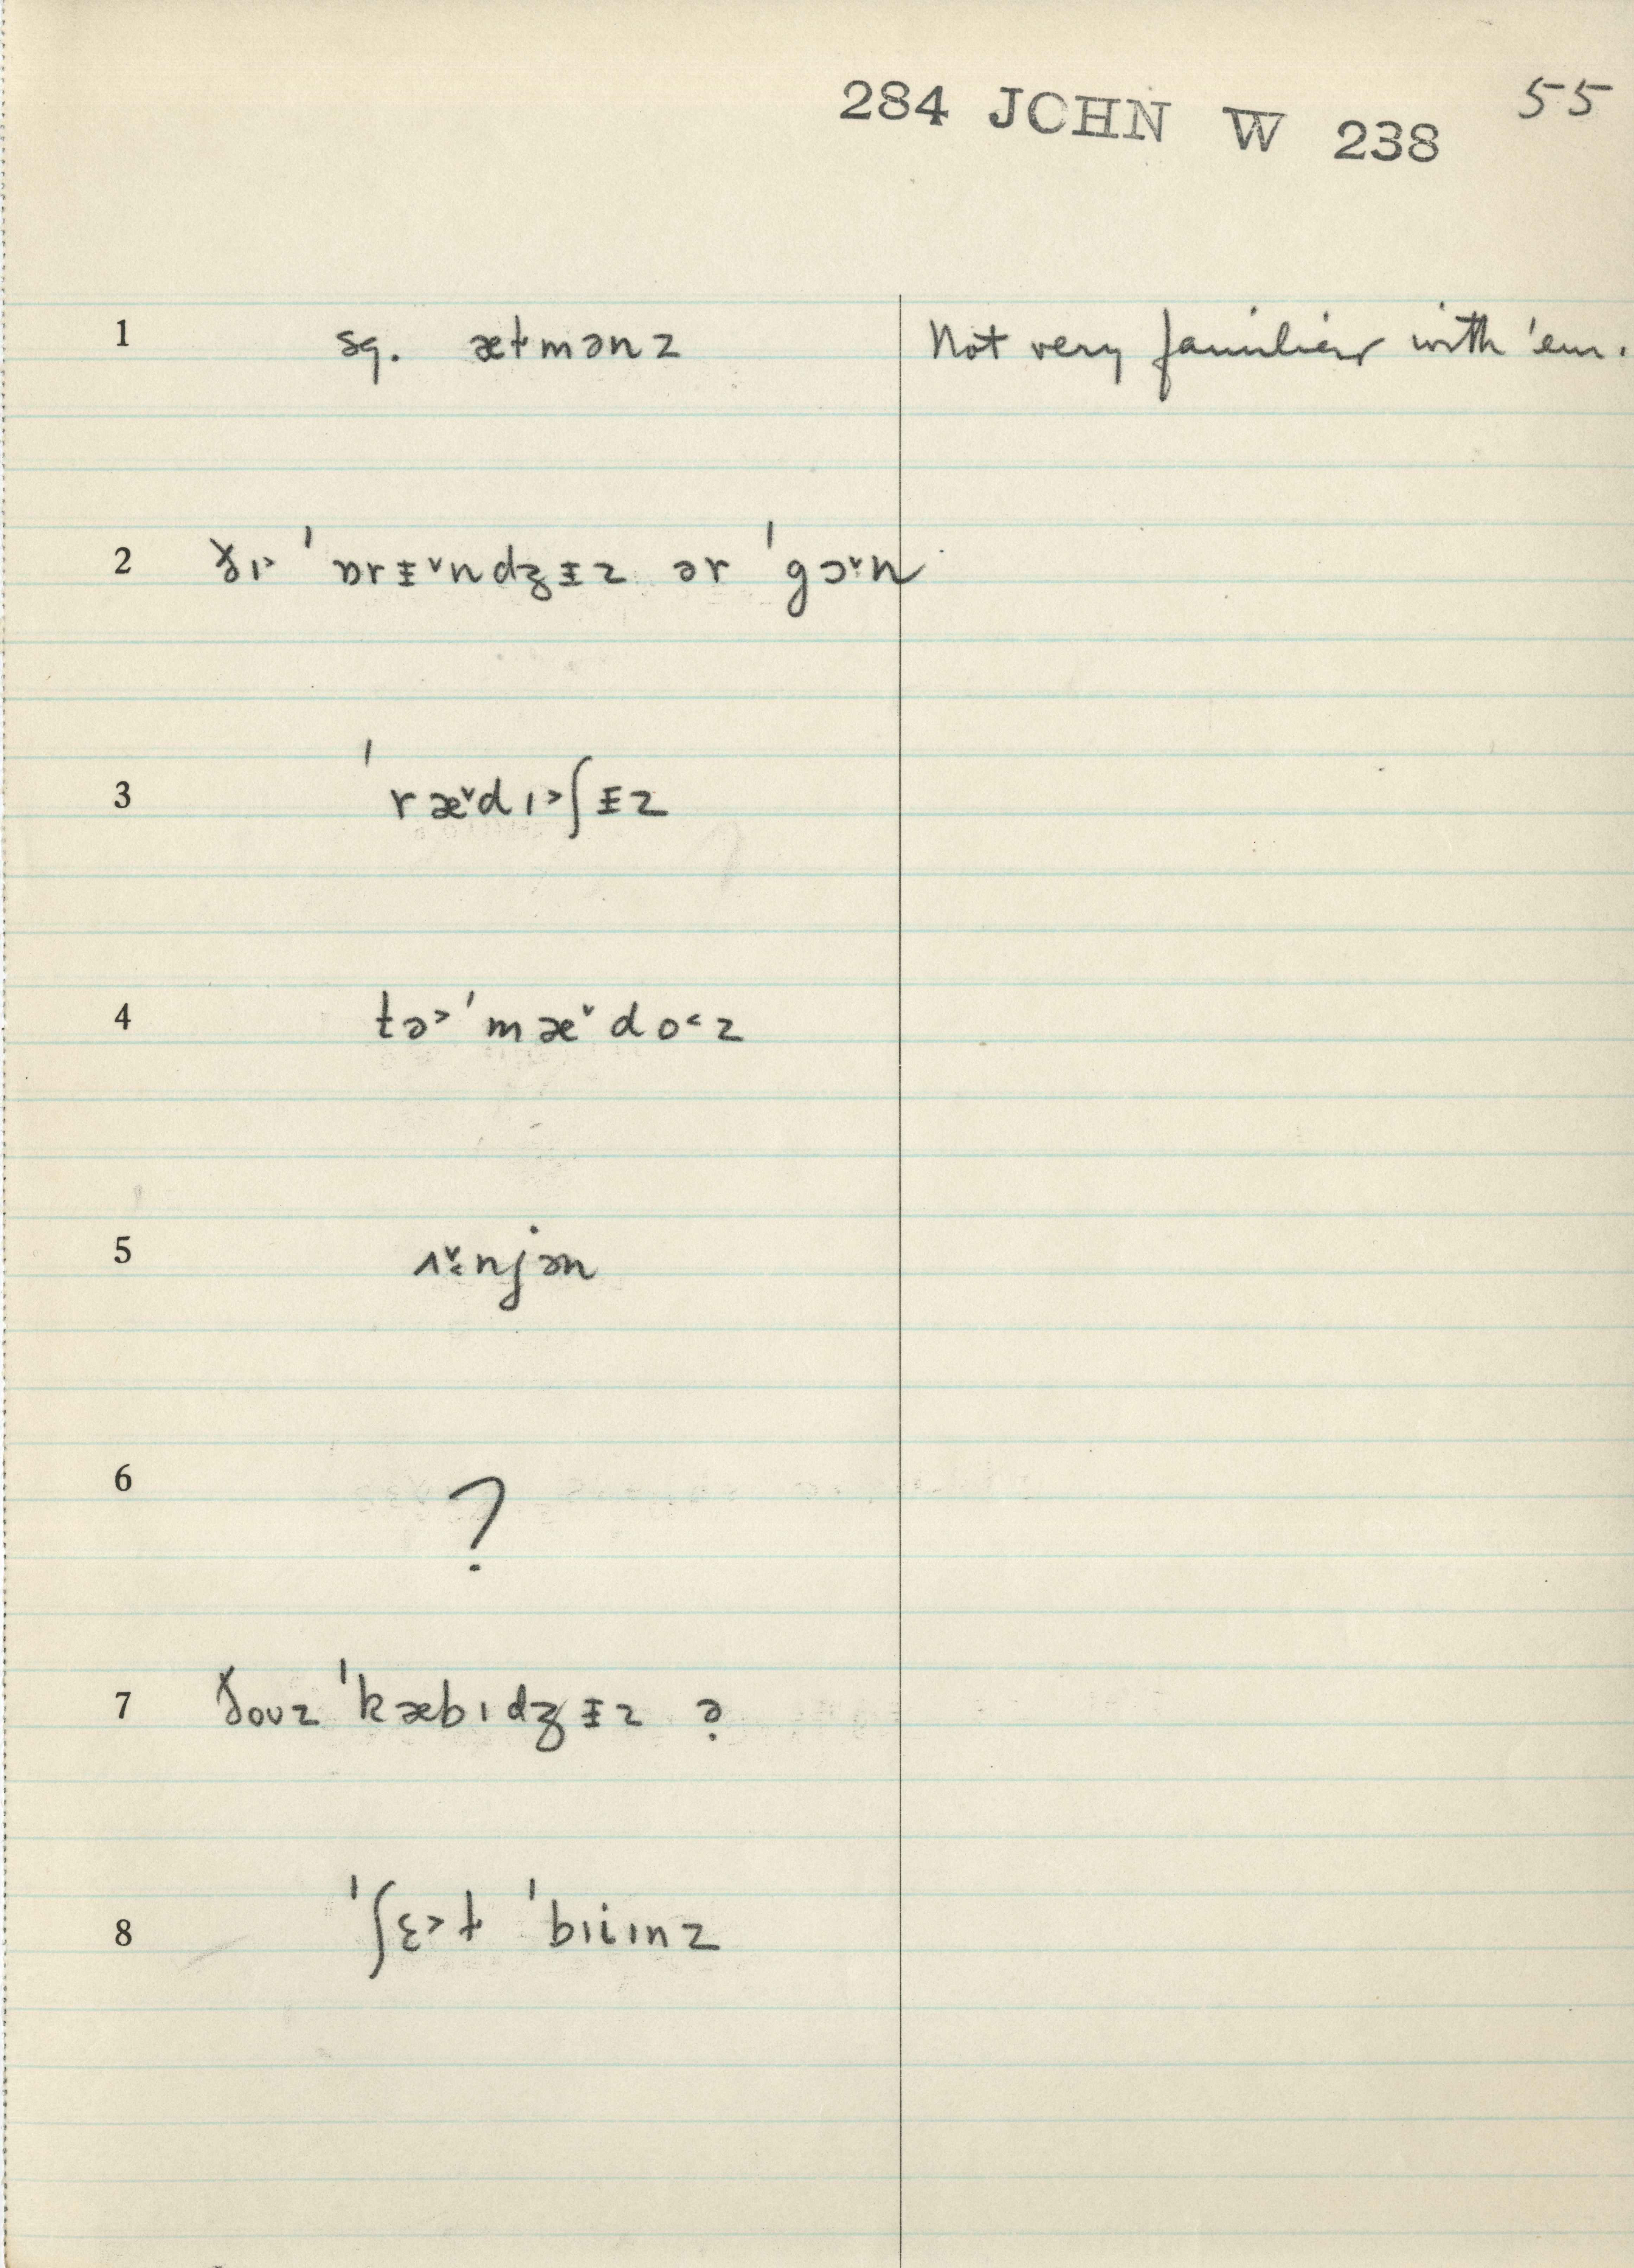 284 JOHN W 238 55
1 sg. æɫmənz Not very familiar with 'em.
2 ðɪ˃ ˈɒrɪ̵ˇndʒɪ̵z ər ˈgɔˇ·n
3 ˈræˇdɪ˃ʃɪ̵z
4 tə˃ˈmæˇdo˂z
5 ʌˇ˂njən
6 ?
7 ðouz ˈkæbɪdʒɪ̵z ə̣
8 ˈʃɛ˃ɫ ˈbɪiɪnz